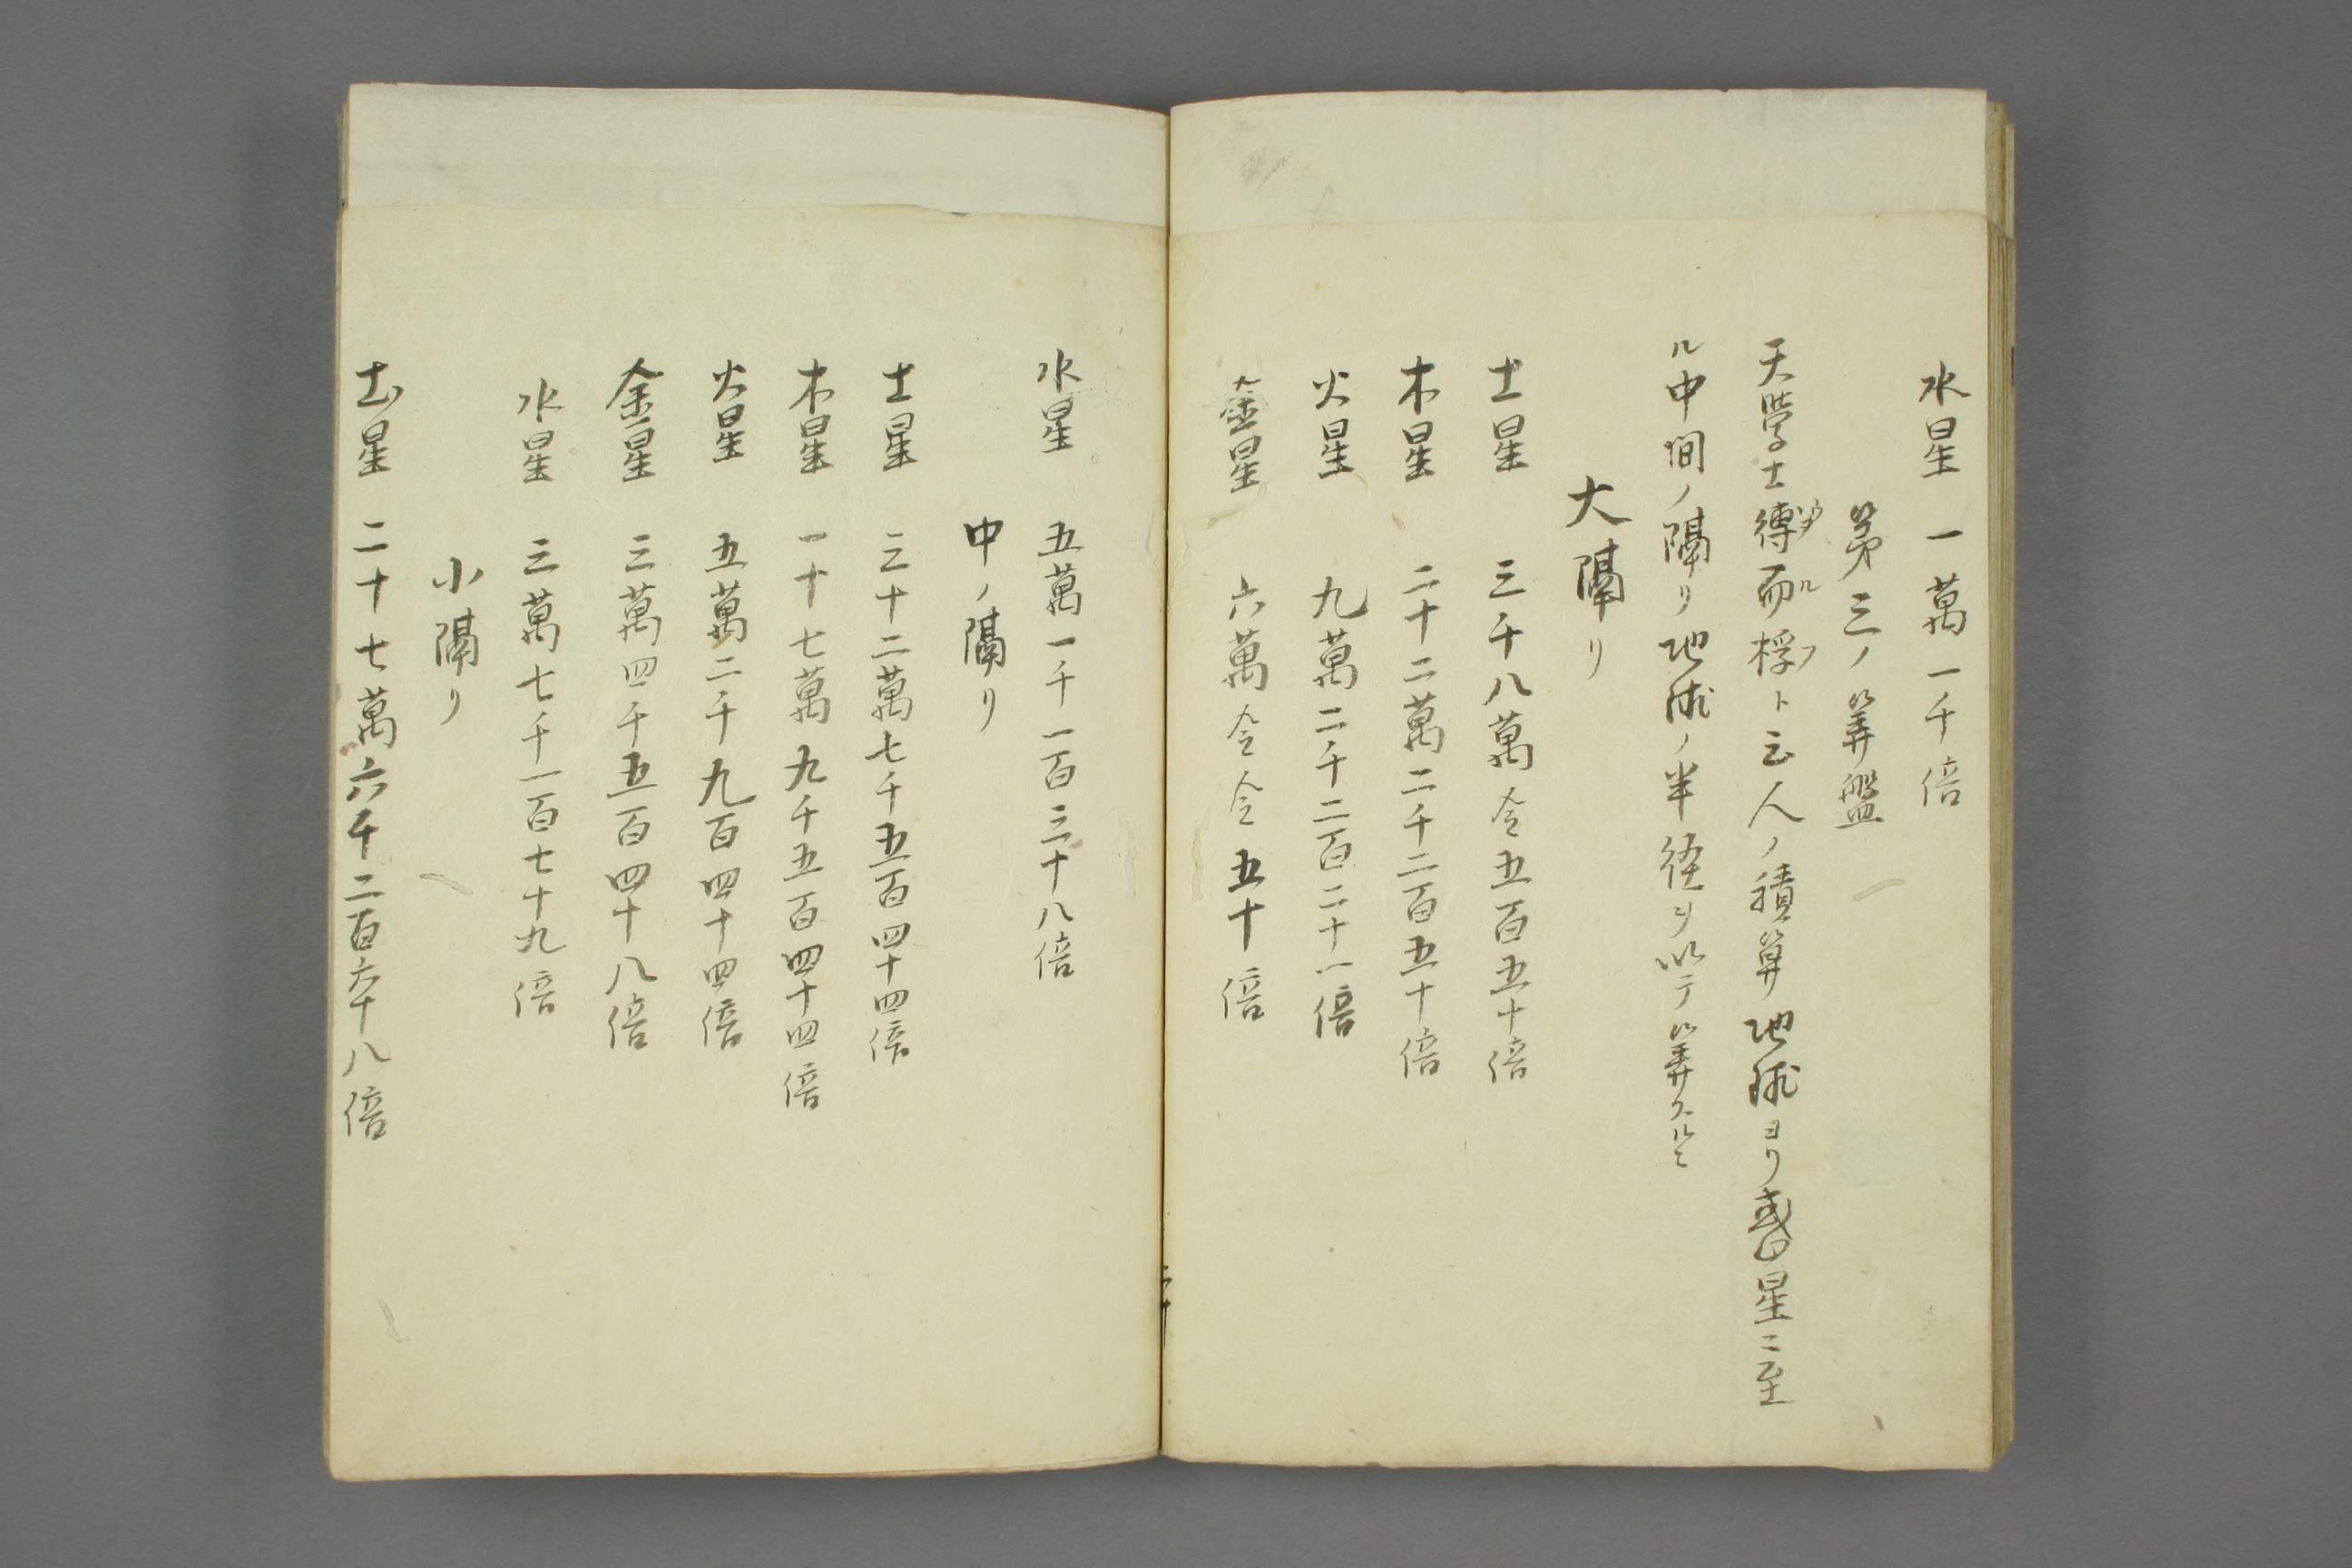 水星 一萬一千倍
第三ノ筭盤
天学士傳而桴ト云人ノ積算地球ヨリ惑星ニ至
ル中間ノ隔リ地球ノ半径ヲ以テ筭クル
大隔リ
土星 三千八萬令五百五十倍
木星 二十二萬二千二百五十倍
火星 九萬二千二百二十一倍
金星 六萬令令五十倍
二十
水星 五萬一千一百三十八倍
中ノ隔リ
土星 三十二萬七千五百四十四倍
木星 一十七萬九千五百四十四倍
火星 五萬二千九百四十四倍
金星 三萬四千五百四十八倍
水星 三萬七千一百七十九倍
小隔リ
土星 二十七萬六千二百六十八倍